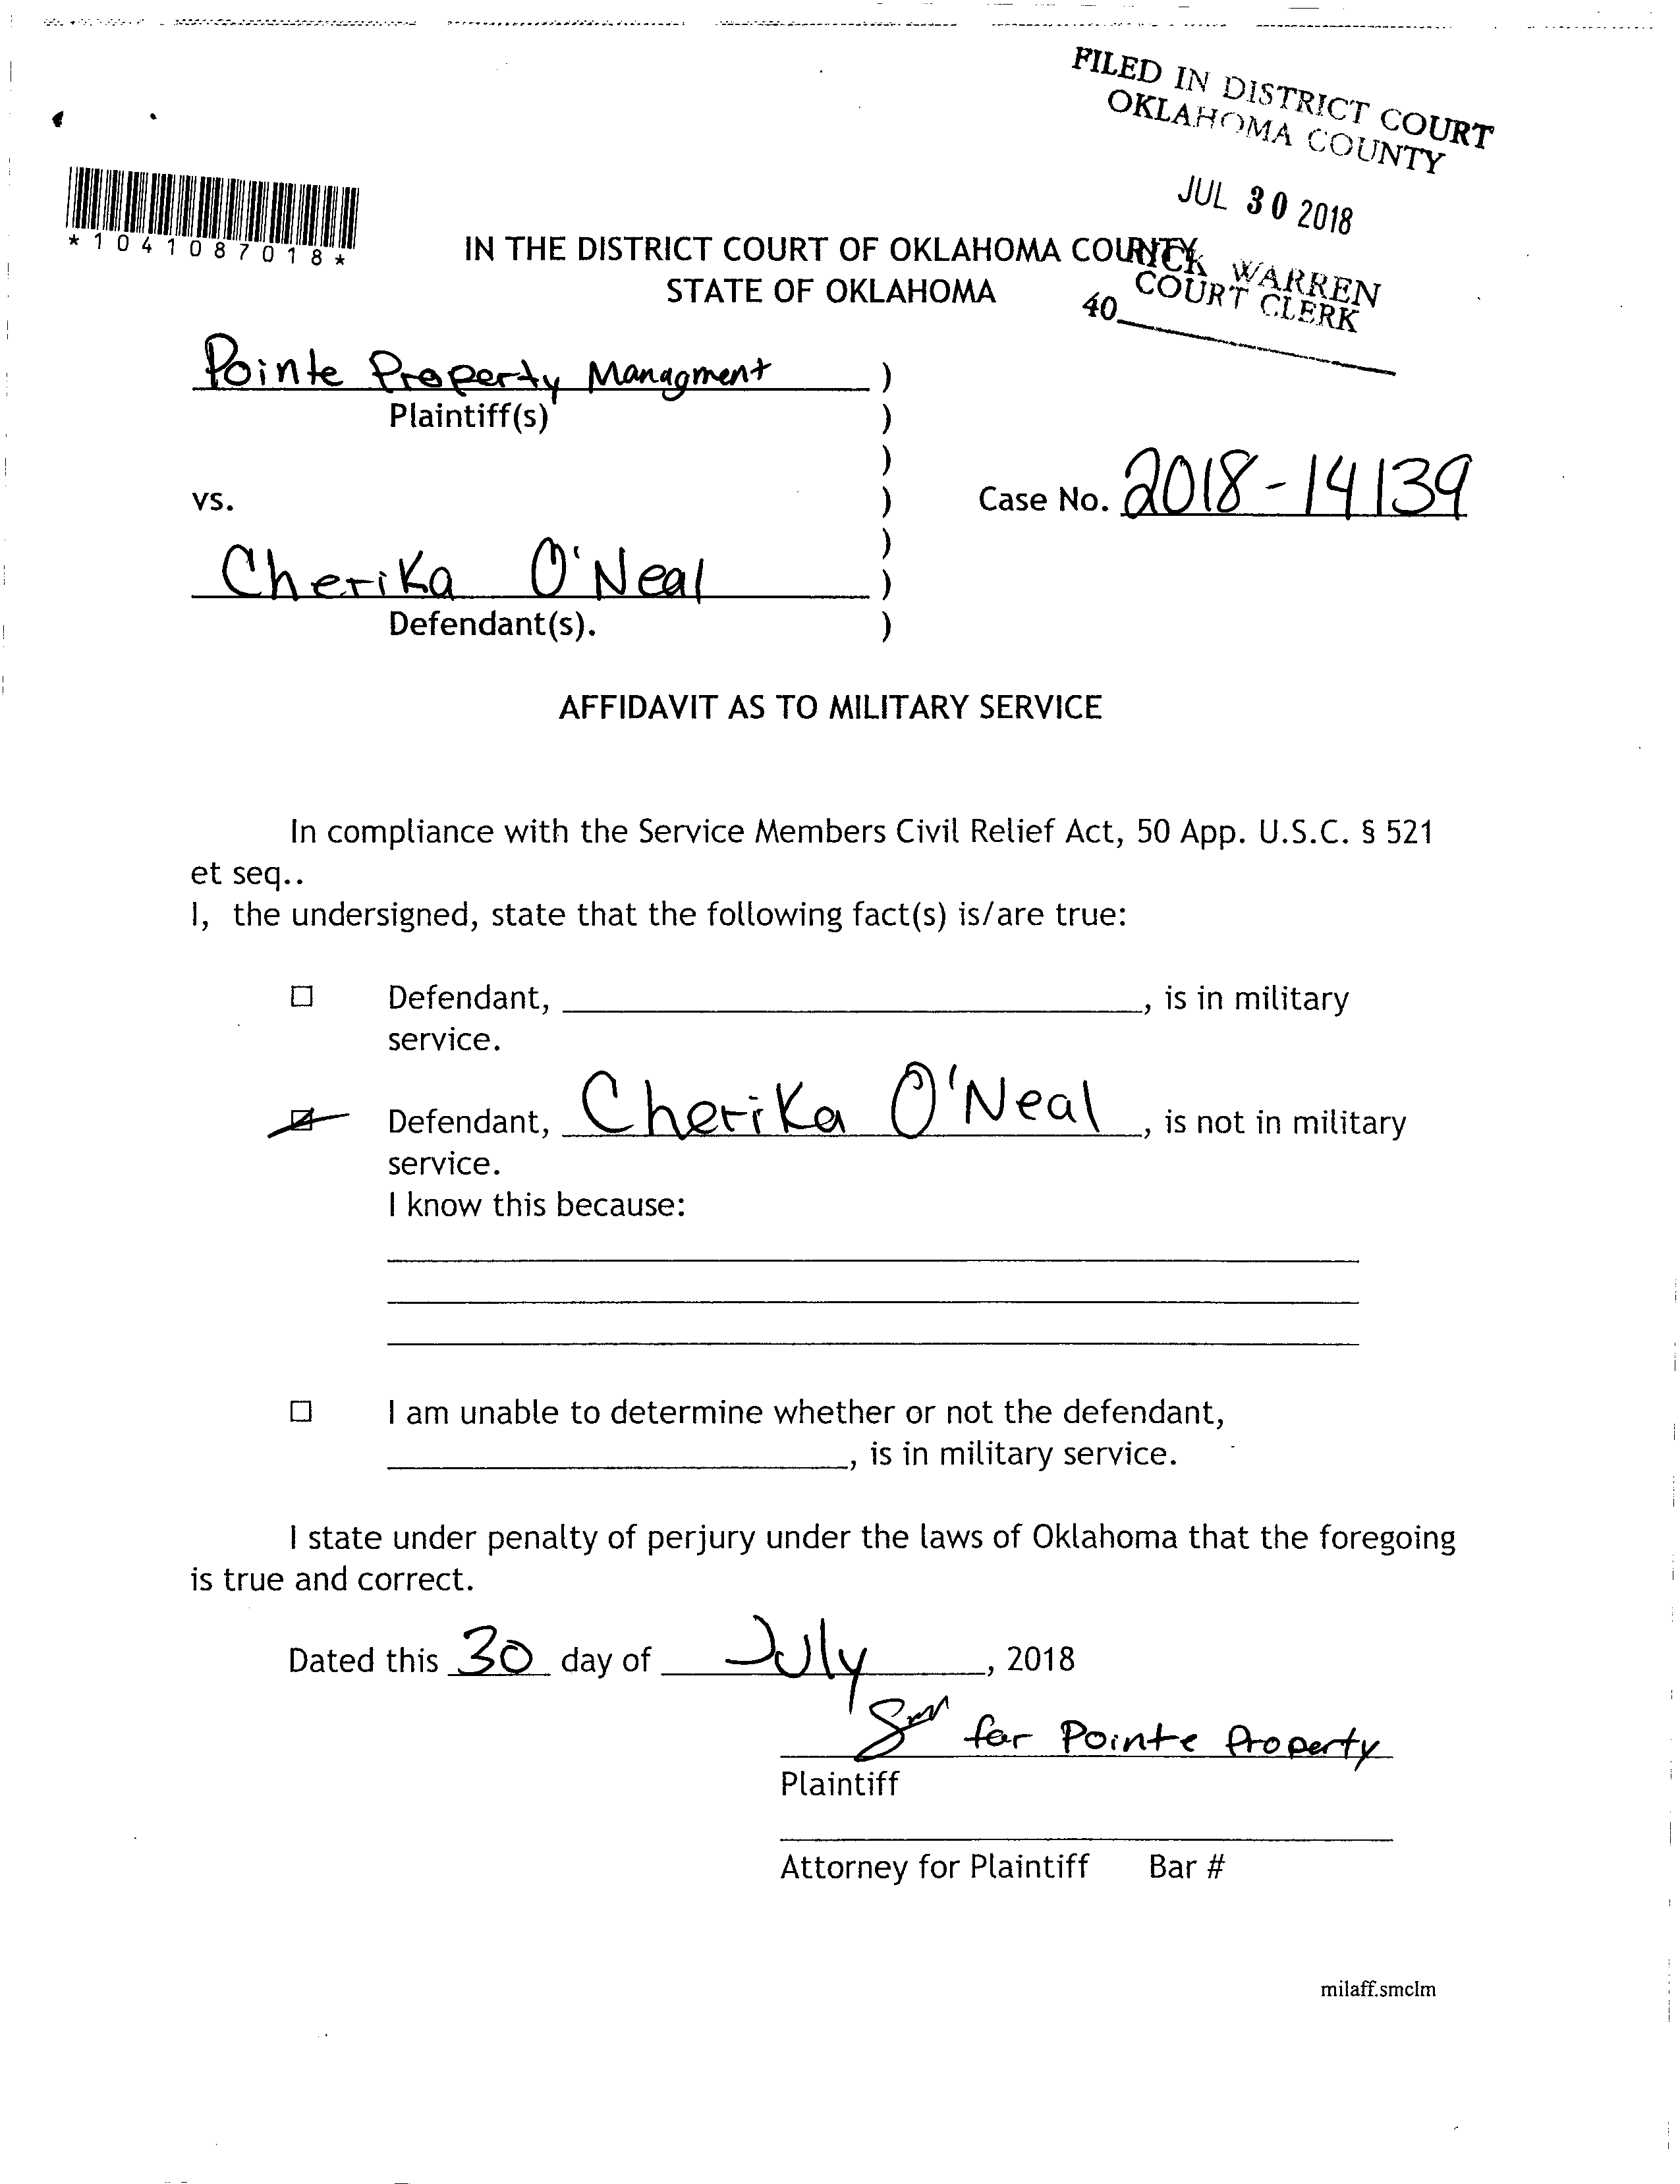 FILED IN DISTRICT COURT
OKLAHOMA COUNTY
JUL 30 2018
*1041087018*
IN THE DISTRICT COURT OF OKLAHOMA COUNTY
RICK WARREN
STATE OF OKLAHOMA
COURT CLERK
40
Pointe Property Managment )
Plaintiff(s) )
)
vs. ) Case No. 2018-14139
)
Cherika O'Neal )
Defendant(s). )
AFFIDAVIT AS TO MILITARY SERVICE
In compliance with the Service Members Civil Relief Act, 50 App. U.S.C. § 521
et seq..
I, the undersigned, state that the following fact(s) is/are true:
☐ Defendant, , is in military
service.
☑ Defendant, Cherika O'Neal, is not in military
service.
I know this because:
☐ I am unable to determine whether or not the defendant,
, is in military service.
I state under penalty of perjury under the laws of Oklahoma that the foregoing
is true and correct.
Dated this 30 day of July, 2018
for Pointe Property
Plaintiff
Attorney for Plaintiff Bar #
milaff.smclm